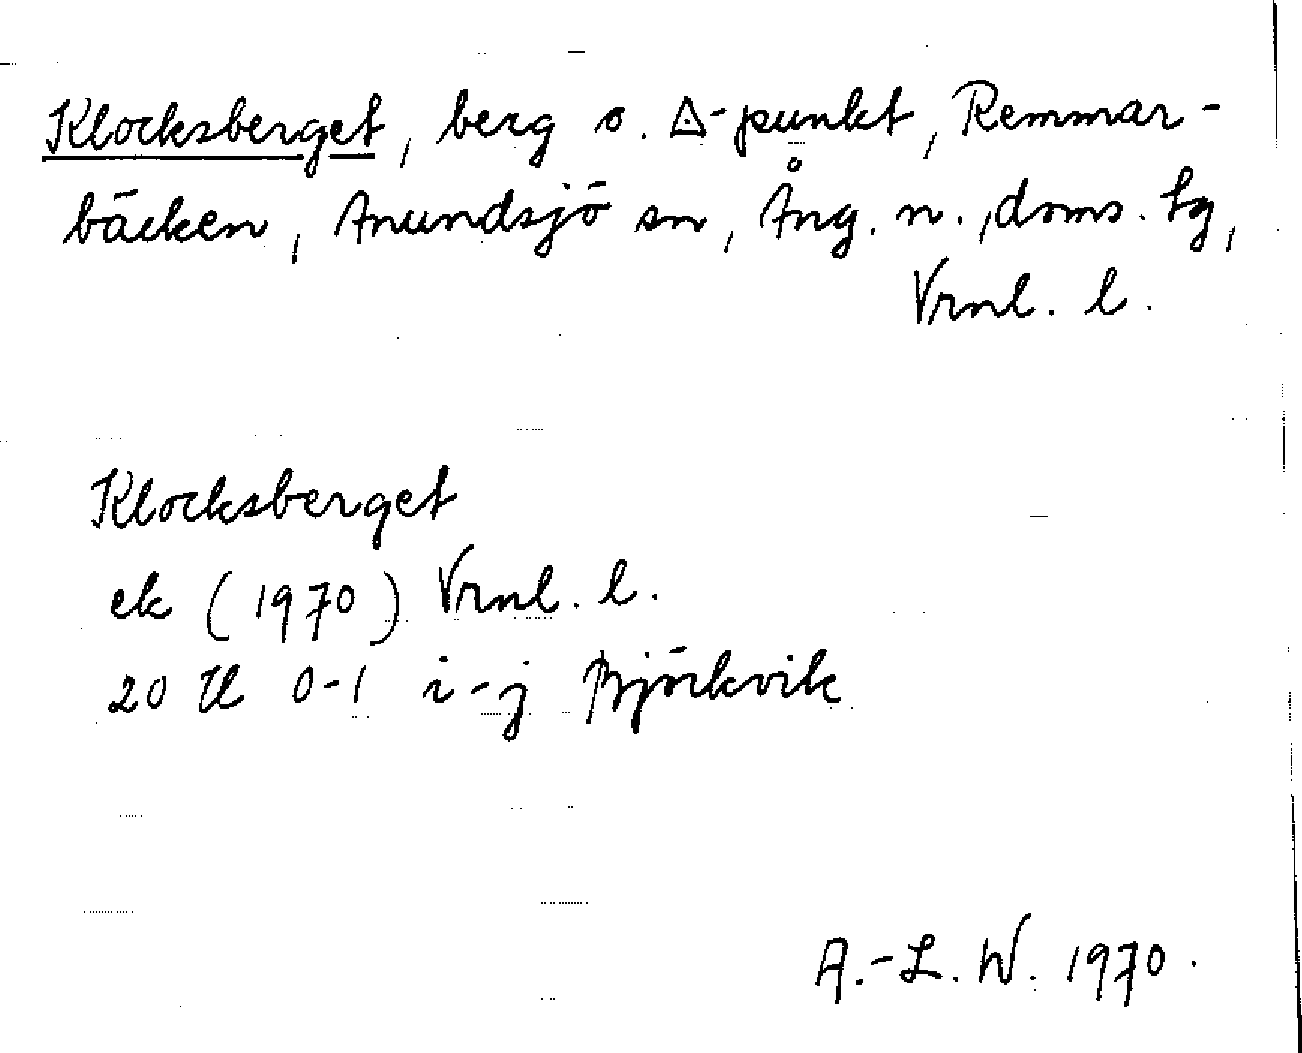 Klocksberget, berg o. Δ-punkt, Remmar-
bäcken, Anundsjö sn, Ång. n., doms. sg,
Vrnl. l.
Klocksberget
ek (1970) Vrnl. l.
20 Il 0-1 i-j Björkvik
A.-L. W. 1970.